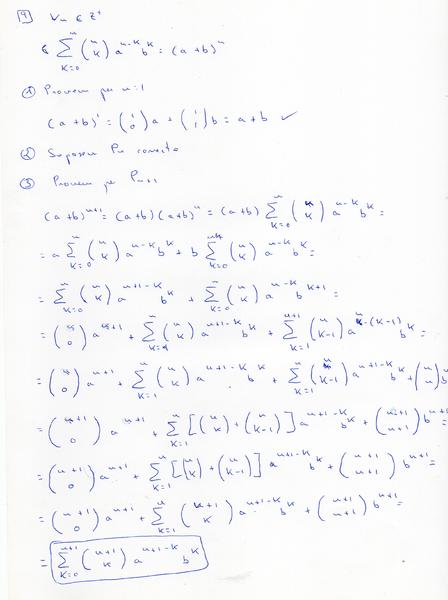 9 ∀n ∈ Z⁺
∑_{K=0}^{n} (n K) a^{n-K} b^K = (a+b)^n
① Provem per n=1
(a+b)^1 = (1 0) a + (1 1) b = a+b ✓
② Suposem Pn correcte
③ Provem per Pn+1
(a+b)^{n+1} = (a+b)(a+b)^n = (a+b) ∑_{K=0}^{n} (n K) a^{n-K} b^K =
= a ∑_{K=0}^{n} (n K) a^{n-K} b^K + b ∑_{K=0}^{n} (n K) a^{n-K} b^K =
= ∑_{K=0}^{n} (n K) a^{n+1-K} b^K + ∑_{K=0}^{n} (n K) a^{n-K} b^{K+1} =
= (n 0) a^{n+1} + ∑_{K=1}^{n} (n K) a^{n+1-K} b^K + ∑_{K=1}^{n+1} (n K-1) a^{n-(K-1)} b^K =
= (n 0) a^{n+1} + ∑_{K=1}^{n} (n K) a^{n+1-K} b^K + ∑_{K=1}^{n} (n K-1) a^{n+1-K} b^K + (n n) b
= (n+1 0) a^{n+1} + ∑_{K=1}^{n} [(n K) + (n K-1)] a^{n+1-K} b^K + (n+1 n+1) b^{n+1} =
= (n+1 0) a^{n+1} + ∑_{K=1}^{n} [(n K) + (n K-1)] a^{n+1-K} b^K + (n+1 n+1) b^{n+1} =
= (n+1 0) a^{n+1} + ∑_{K=1}^{n} (n+1 K) a^{n+1-K} b^K + (n+1 n+1) b^{n+1} =
= ∑_{K=0}^{n+1} (n+1 K) a^{n+1-K} b^K